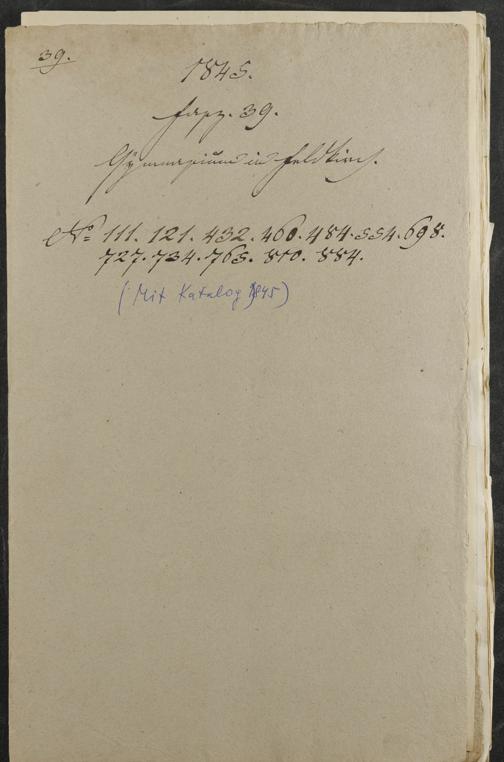 39.
1845.
Fasz. 39.
Gymnasium in Feldkirch.
No 111. 121. 432. 460. 484. 554. 698.
727. 734. 765. 810. 884.
(Mit Katalog 1845)